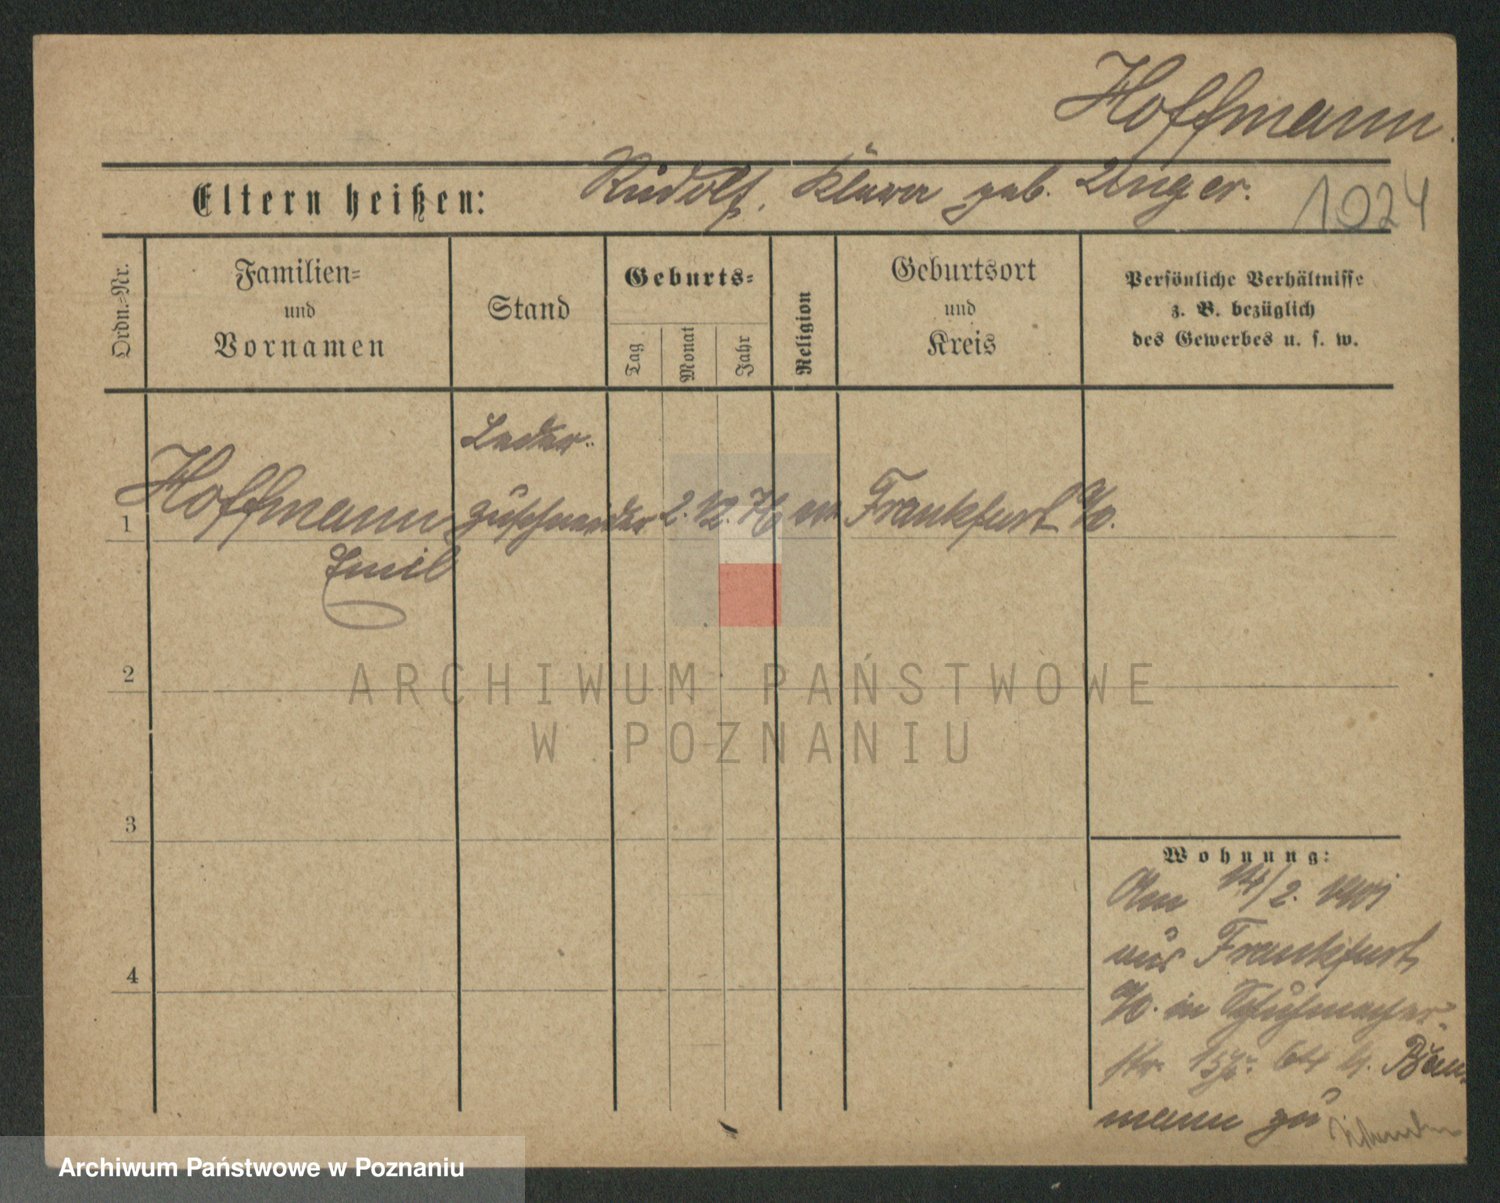 Hoffmann.
Eltern heißen: Rudolf, Klara geb. Unger.
1024
Ordn.-Nr.
Familien-
und
Vornamen
Stand
Geburts-
Tag
Monat
Jahr
Religion
Geburtsort
und
Kreis
Persönliche Verhältnisse
z. B. bezüglich
des Gewerbes u. s. w.
Leder-
1 Hoffmann zuschneider 2. 12. 76 ev. Frankfurt a/O.
Emil
2
3
4
ARCHIWUM PAŃSTWOWE
W POZNANIU
Wohnung:
Am 14/2. 1901
aus Frankfurt
a/O. in Schuhmacher-
str. b.
mann zu
Archiwum Państwowe w Poznaniu